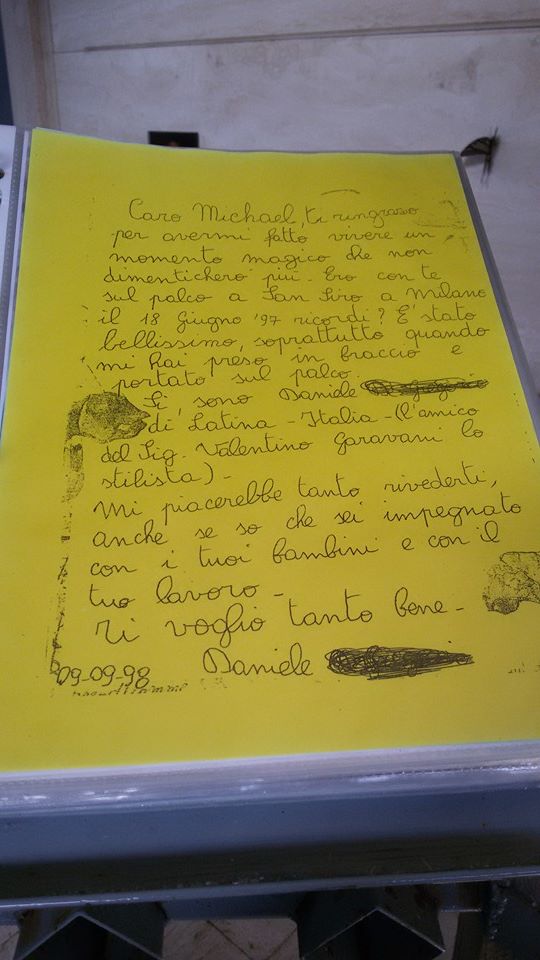 Caro Michael, ti ringrazio
per avermi fatto vivere un
momento magico che non
dimenticherò più. Ero con te
sul palco a San Siro a Milano
il 18 Giugno '97 ricordi? E' stato
bellissimo, soprattutto quando
mi hai preso in braccio e
portato sul palco.
Sono Daniele
di Latina - Italia - (l'amico
del Sig. Valentino Garavani lo
stilista) -
Mi piacerebbe tanto rivederti,
anche se so che sei impegnato
con i tuoi bambini e con il
tuo lavoro -
Ti voglio tanto bene -
Daniele
09-09-98